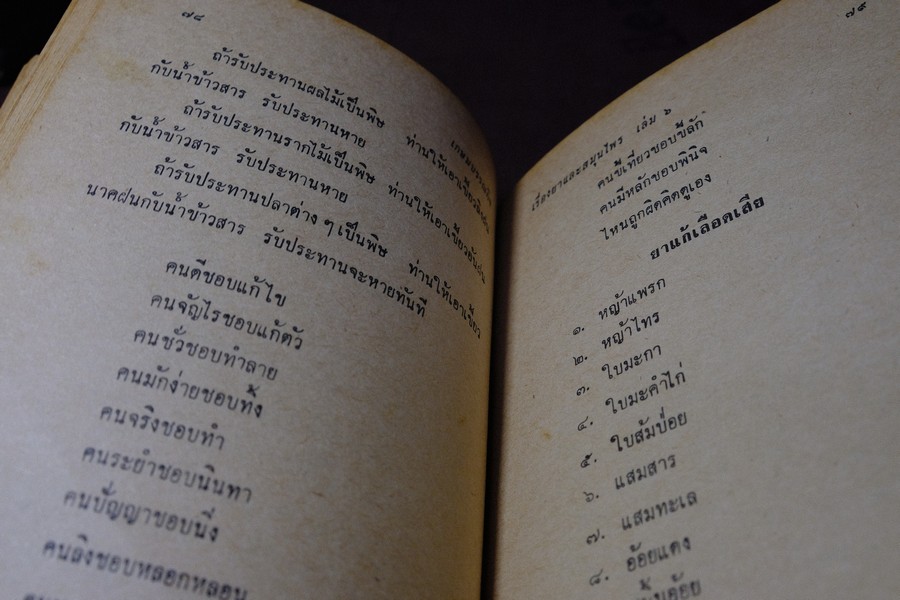 ๗๘
ถ้ารับประทานผลไม้เป็นพิษ ท่านให้เอาเขี้ยว
กับน้ำข้าวสาร รับประทานหาย
ถ้ารับประทานรากไม้เป็นพิษ ท่านให้เอาเขี้ยว
กับน้ำข้าวสาร รับประทานหาย
ถ้ารับประทานปลาต่าง ๆ เป็นพิษ ท่านให้เอาเขี้ยว
นาคฝนกับน้ำข้าวสาร รับประทานจะหายทันที
คนดีชอบแก้ไข
คนจัญไรชอบแก้ตัว
คนชั่วชอบทำลาย
คนมักง่ายชอบทิ้ง
คนจริงชอบทำ
คนระยำชอบนินทา
คนปัญญาชอบนิ่ง
คนลิงชอบหลอกหลอน
๗๙
เรื่องยาและสมุนไพร เล่ม ๖
คนขี้เที่ยวชอบขี้ลัก
คนมีหลักชอบพินิจ
ไหนถูกผิดคิดดูเอง
ยาแก้เลือดเสีย
๑. หญ้าแพรก
๒. หญ้าไทร
๓. ใบมะกา
๔. ใบมะคำไก่
๕. ใบส้มป่อย
๖. แสมสาร
๗. แสมทะเล
๘. อ้อยแดง